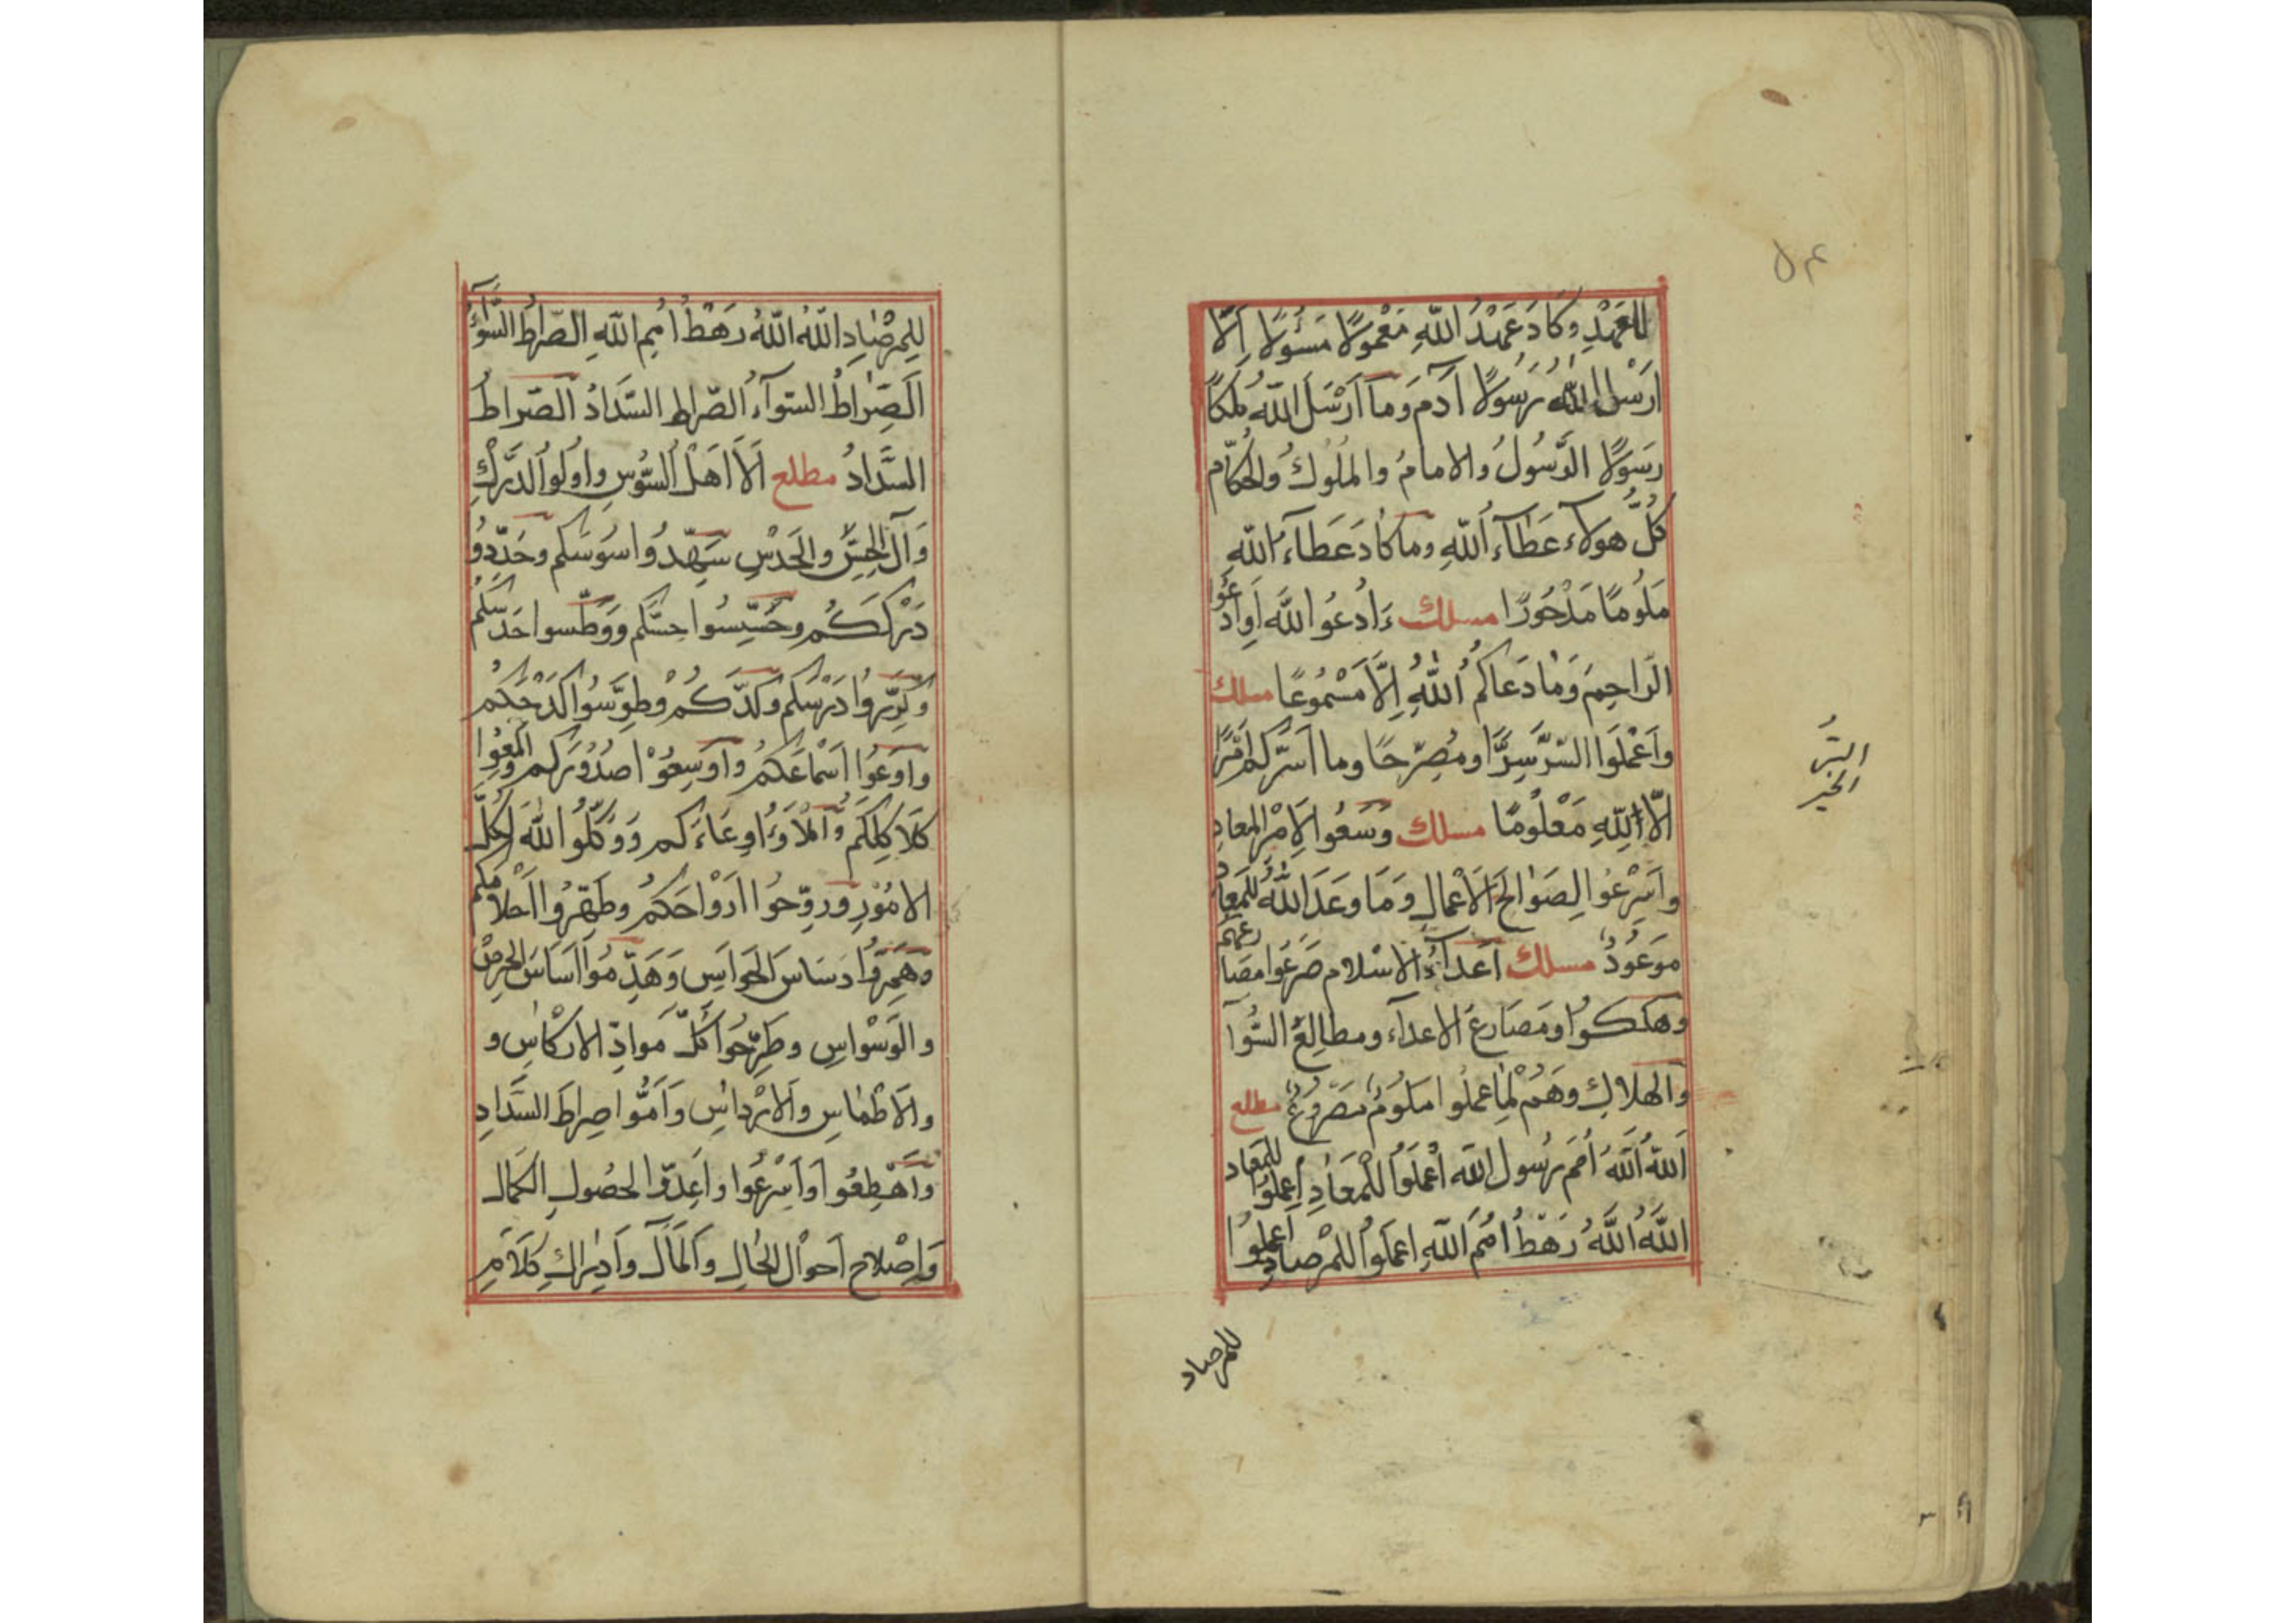 للعَهْدِ وكَادَ عَهْدُ اللّٰهِ مَعْمولًا مَسْؤلًا اِلَّا
اَرْسَلَ اللّٰهُ رَسُولًا آدَم وَمَا اَرْسَلَ اللّٰهُ مَلَكًا
رَسولًا الرَّسُولُ والامامُ والمُلُوكُ والحُكّام
كُلُّ هولاء عَطَآءُ اللّٰهِ وماكَادَ عَطَآءُ اللّٰهِ
مَلُومًا مَدْحُورًا مسلك ءَادْعُوا اللّٰهَ اَوِادْعُوا
الرّاحِمَ وَمَا دَعَاكُمُ اللّٰهِ اِلَّا مَسْمُوعًا مسلك
واَعْمَلُوا السِّرَّ سِرًّا ومُصَرِّحًا وما اَسَرَّكم اَمْرًا
اِلَّا اللّٰهِ مَعْلُومًا مسلك وَسَعُوا لِاَمْرِ المعادِ
واَسْرِعُوا لِصَوَالِحَ الَاعْمَالِ وَمَا وَعَدَ اللّٰهُ للمَعادِ
مَوعُودٌ مسلك اَعْدَآءُ الاسْلام صَرَعُوا مصَارعَهم
وهلكوا ومَصَارعُ الاعدآء ومطالِعُ السُّوٓا
والهلاكِ وهُمْ لِمَا عملُوا مَلُومٌ مَصْروعٌ مطلع
اَللّٰهُ اَللّٰهُ اُمَمَ رَسُولِ اللّٰه اعْمَلُوا لِلْمَعَادِ اِعملُوا للمَعاد
اللّٰهُ اللّٰهُ رَهْطُ اُمَمِ اللّٰهِ اعملُوا للمْرصادِ اعملُوا
للمرصاد
السِّرُّ
الخير
لِلمِرْصَادِ اللّٰهُ اللّٰهُ رَهْطُ اُمَمِ اللّٰهِ الصّراطُ السَّوآءُ
اَلصِّرَاطُ السوآءُ الصّراط السَّدَادُ الصّراطُ
السَّدادُ مطلع اَلَا اَهْلَ السُّوسِ واُولُوا الدَّرْكِ
وَآلَ الحِسِّ والحَدْسِ سَهِّدُوا سُوسَكم وحَدِّدُوا
دَرْكَكُم وحَسِّسُوا حِسَّكم ووَطِّسوا حَدْسَكُمْ
وكَرِّرُوا دَرْسَكُم وكَدَّكُمْ وطوِّسُوا كَدْحَكُم
واوعُوا اَسْمَاعَكم وَاَوسِعُوْا صُدُورَكم واَلمِعُوا
كَلَاكِلَكُم واَمْلَاؤُا وِعَاءَكم وَوَكِّلُوا اللّٰهَ لِكُلِّ
الامُوْرِ وَروِّحُوا اَرْوَاحَكُمْ وطَهِّرُوا اَحْلامَكُم
وهَمِّرُوا دسَاسَ الحَوَاسِ وَهَدِّمُوا اَسَاسَ الحِرصْ
والوَسْوَاسِ وطَرِّحُوا كُلَّ مَوادِّ الارْكَاسِ و
والَاطْمَاسِ والَارْدَاسِ وَاَمُّوا صِراطَ السَّدادِ
واَهْطِعُوا وَاَسْرِعُوا واَعِدّوا لحُصُولِ الكَمَالِ
وَاِصْلاح اَحْوَالِ الحَالِ والمَآلِ وَادراكِ كَلَامِ